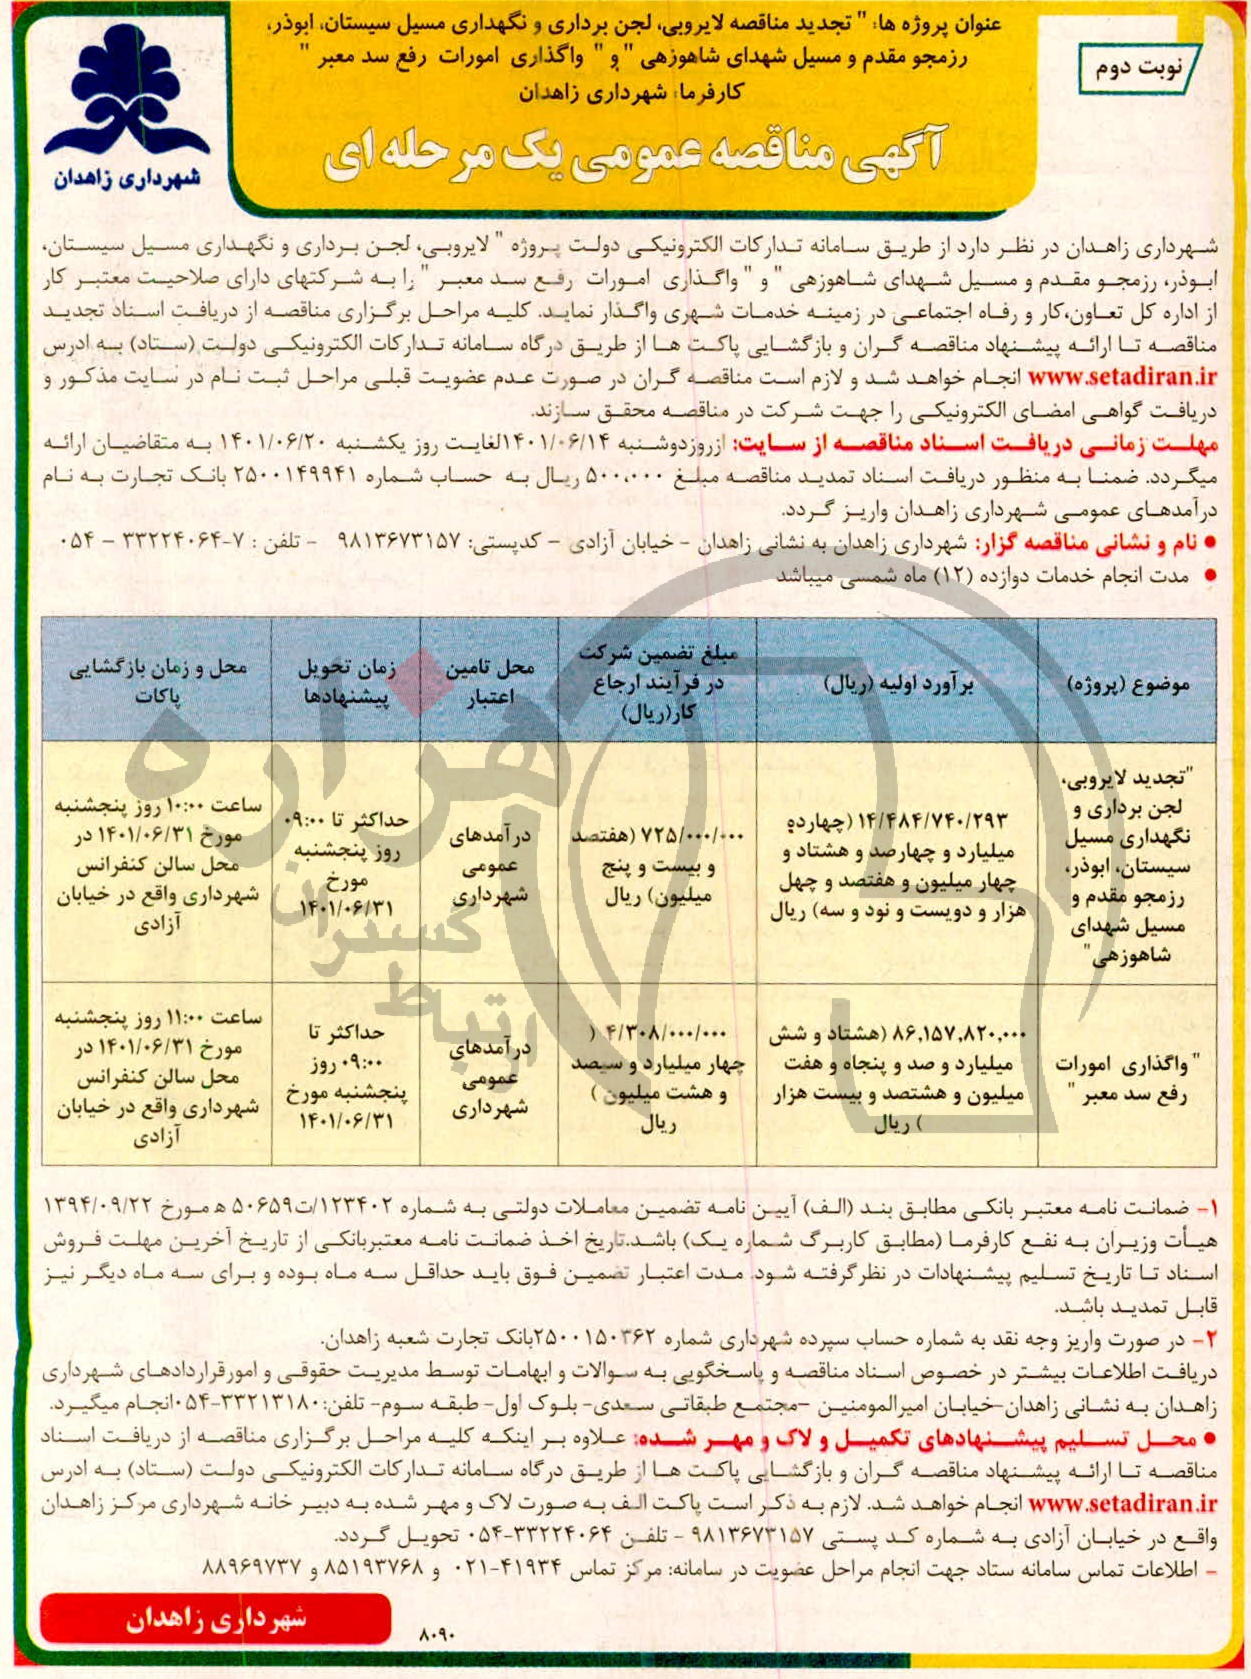 عنوان پروژه ها: " تجدید مناقصه لایروبی، لجن برداری و نگهداری مسیل سیستان، ابوذر،
رزمجو مقدم و مسیل شهدای شاهوزهی " و " واگذاری امورات رفع سد معبر "
کارفرما: شهرداری زاهدان
نوبت دوم
آگهی مناقصه عمومی یک مرحله ای
شهرداری زاهدان
شهرداری زاهدان در نظر دارد از طریق سامانه تدارکات الکترونیکی دولت پروژه " لایروبی، لجن برداری و نگهداری مسیل سیستان،
ابوذر، رزمجو مقدم و مسیل شهدای شاهوزهی " و " واگذاری امورات رفع سد معبر " را به شرکتهای دارای صلاحیت معتبر کار
از اداره کل تعاون،کار و رفاه اجتماعی در زمینه خدمات شهری واگذار نماید. کلیه مراحل برگزاری مناقصه از دریافت اسناد تجدید
مناقصه تا ارائه پیشنهاد مناقصه گران و بازگشایی پاکت ها از طریق درگاه سامانه تدارکات الکترونیکی دولت (ستاد) به ادرس
www.setadiran.ir انجام خواهد شد و لازم است مناقصه گران در صورت عدم عضویت قبلی مراحل ثبت نام در سایت مذکور و
دریافت گواهی امضای الکترونیکی را جهت شرکت در مناقصه محقق سازند.
مهلت زمانی دریافت اسناد مناقصه از سایت: ازروزدوشنبه ۱۴۰۱/۰۶/۱۴لغایت روز یکشنبه ۱۴۰۱/۰۶/۲۰ به متقاضیان ارائه
میگردد. ضمنا به منظور دریافت اسناد تمدید مناقصه مبلغ ۵۰۰،۰۰۰ ریال به حساب شماره ۲۵۰۰۱۴۹۹۴۱ بانک تجارت به نام
درآمدهای عمومی شهرداری زاهدان واریز گردد.
• نام و نشانی مناقصه گزار: شهرداری زاهدان به نشانی زاهدان – خیابان آزادی – کدپستی: ۹۸۱۳۶۷۳۱۵۷ - تلفن : ۷-۳۳۲۲۴۰۶۴ – ۰۵۴
• مدت انجام خدمات دوازده (۱۲) ماه شمسی میباشد
موضوع (پروژه)
برآورد اولیه (ریال)
مبلغ تضمین شرکت
در فرآیند ارجاع
کار(ریال)
محل تامین
اعتبار
زمان تحویل
پیشنهادها
محل و زمان بازگشایی
پاکات
"تجدید لایروبی،
لجن برداری و
نگهداری مسیل
سیستان، ابوذر،
رزمجو مقدم و
مسیل شهدای
شاهوزهی"
۱۴/۴۸۴/۷۴۰/۲۹۳ (چهارده
میلیارد و چهارصد و هشتاد و
چهار میلیون و هفتصد و چهل
هزار و دویست و نود و سه) ریال
۷۲۵/۰۰۰/۰۰۰ (هفتصد
و بیست و پنج
میلیون) ریال
درآمدهای
عمومی
شهرداری
حداکثر تا ۰۹:۰۰
روز پنجشنبه
مورخ
۱۴۰۱/۰۶/۳۱
ساعت ۱۰:۰۰ روز پنجشنبه
مورخ ۱۴۰۱/۰۶/۳۱ در
محل سالن کنفرانس
شهرداری واقع در خیابان
آزادی
"واگذاری امورات
رفع سد معبر"
۸۶,۱۵۷,۸۲۰,۰۰۰ (هشتاد و شش
میلیارد و صد و پنجاه و هفت
میلیون و هشتصد و بیست هزار
) ریال
۴/۳۰۸/۰۰۰/۰۰۰ (
چهار میلیارد و سیصد
و هشت میلیون )
ریال
درآمدهای
عمومی
شهرداری
حداکثر تا
۰۹:۰۰ روز
پنجشنبه مورخ
۱۴۰۱/۰۶/۳۱
ساعت ۱۱:۰۰ روز پنجشنبه
مورخ ۱۴۰۱/۰۶/۳۱ در
محل سالن کنفرانس
شهرداری واقع در خیابان
آزادی
هزاره
گستران
ارتباط
۱- ضمانت نامه معتبر بانکی مطابق بند (الف) آیین نامه تضمین معاملات دولتی به شماره ۱۲۳۴۰۲/ت۵۰۶۵۹ ه مورخ ۱۳۹۴/۰۹/۲۲
هیأت وزیران به نفع کارفرما (مطابق کاربرگ شماره یک) باشد.تاریخ اخذ ضمانت نامه معتبربانکی از تاریخ آخرین مهلت فروش
اسناد تا تاریخ تسلیم پیشنهادات در نظرگرفته شود. مدت اعتبار تضمین فوق باید حداقل سه ماه بوده و برای سه ماه دیگر نیز
قابل تمدید باشد.
۲- در صورت واریز وجه نقد به شماره حساب سپرده شهرداری شماره ۲۵۰۰۱۵۰۳۶۲بانک تجارت شعبه زاهدان.
دریافت اطلاعات بیشتر در خصوص اسناد مناقصه و پاسخگویی به سوالات و ابهامات توسط مدیریت حقوقی و امورقراردادهای شهرداری
زاهدان به نشانی زاهدان-خیابان امیرالمومنین –مجتمع طبقاتی سعدی- بلوک اول- طبقه سوم- تلفن:۳۳۲۱۳۱۸۰-۰۵۴انجام میگیرد.
• محل تسلیم پیشنهادهای تکمیل و لاک و مهر شده: علاوه بر اینکه کلیه مراحل برگزاری مناقصه از دریافت اسناد
مناقصه تا ارائه پیشنهاد مناقصه گران و بازگشایی پاکت ها از طریق درگاه سامانه تدارکات الکترونیکی دولت (ستاد) به ادرس
www.setadiran.ir انجام خواهد شد. لازم به ذکر است پاکت الف به صورت لاک و مهر شده به دبیر خانه شهرداری مرکز زاهدان
واقع در خیابان آزادی به شماره کد پستی ۹۸۱۳۶۷۳۱۵۷ - تلفن ۳۳۲۲۴۰۶۴-۰۵۴ تحویل گردد.
- اطلاعات تماس سامانه ستاد جهت انجام مراحل عضویت در سامانه: مرکز تماس ۴۱۹۳۴-۰۲۱ و ۸۵۱۹۳۷۶۸ و ۸۸۹۶۹۷۳۷
شهرداری زاهدان
۸۰۹۰